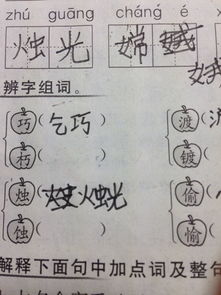 zhú guāng cháng é
烛光 嫦娥
辨字组词。
巧(乞巧 渡(
朽( 镀(
烛(烛光 偷(
蚀( 愉(
解释下面句中加点词及整句